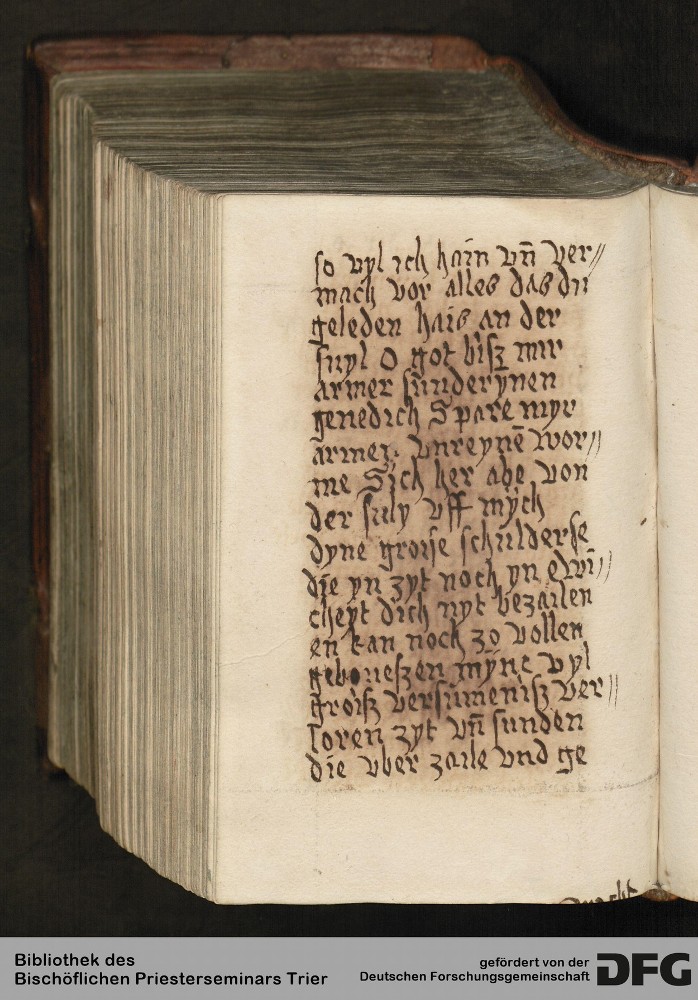 so vyl ich hain vn̄ ver〃
mach vor alles das du
geleden hais an der
suyl O got bisz mir
armer sunderynen
genedich Spare myr
armer vnreynē wor〃
me Sich her abe von
der suly vff mych
dyne groise schulderse
die yn zyt noch yn ewi〃
cheyt dich nyt bezailen
en kan noch zo vollen
myne vyl
groisz versumenisz ver〃
loren zyt vn̄ sunden
die vber zaile vnd ge
Bibliothek des
Bischöflichen Priesterseminars Trier
gefördert von der
Deutschen Forschungsgemeinschaft
DFG